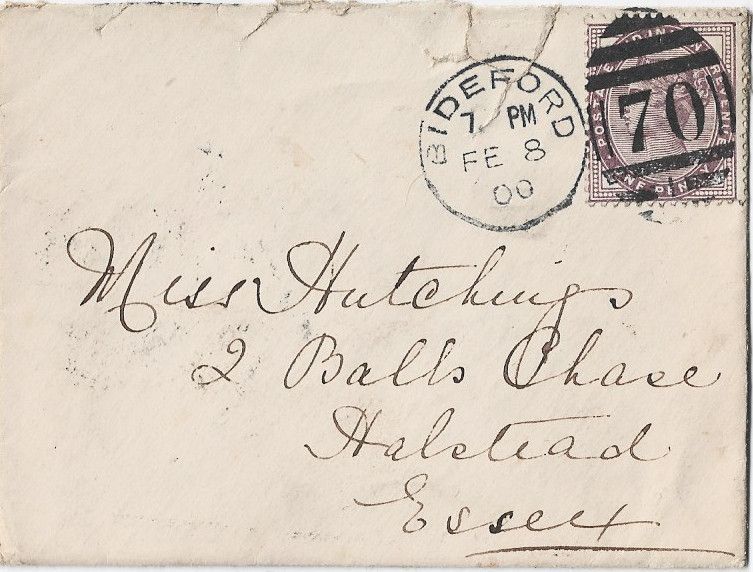 BIDEFORD
7 PM
FE 8
00
70
POSTAGE AND INLAND REVENUE
ONE PENNY
Miss Hutchings
2 Balls Chase
Halstead
Essex